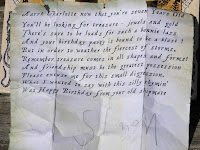 Aaron Scarlotte now that you're seven Years Old
You'll be looking for treasure - jewels and gold
There's sure to be loads for such a bonnie lass
And your birthday party is bound to be a blast!
But in order to weather the fiercest of storms,
Remember treasure comes in all shapes and forms
And friendship must be the greatest possession
Please excuse me for this small digression,
What I wanted to say with this silly rhymin'
Was Happy Birthday from your old shipmate